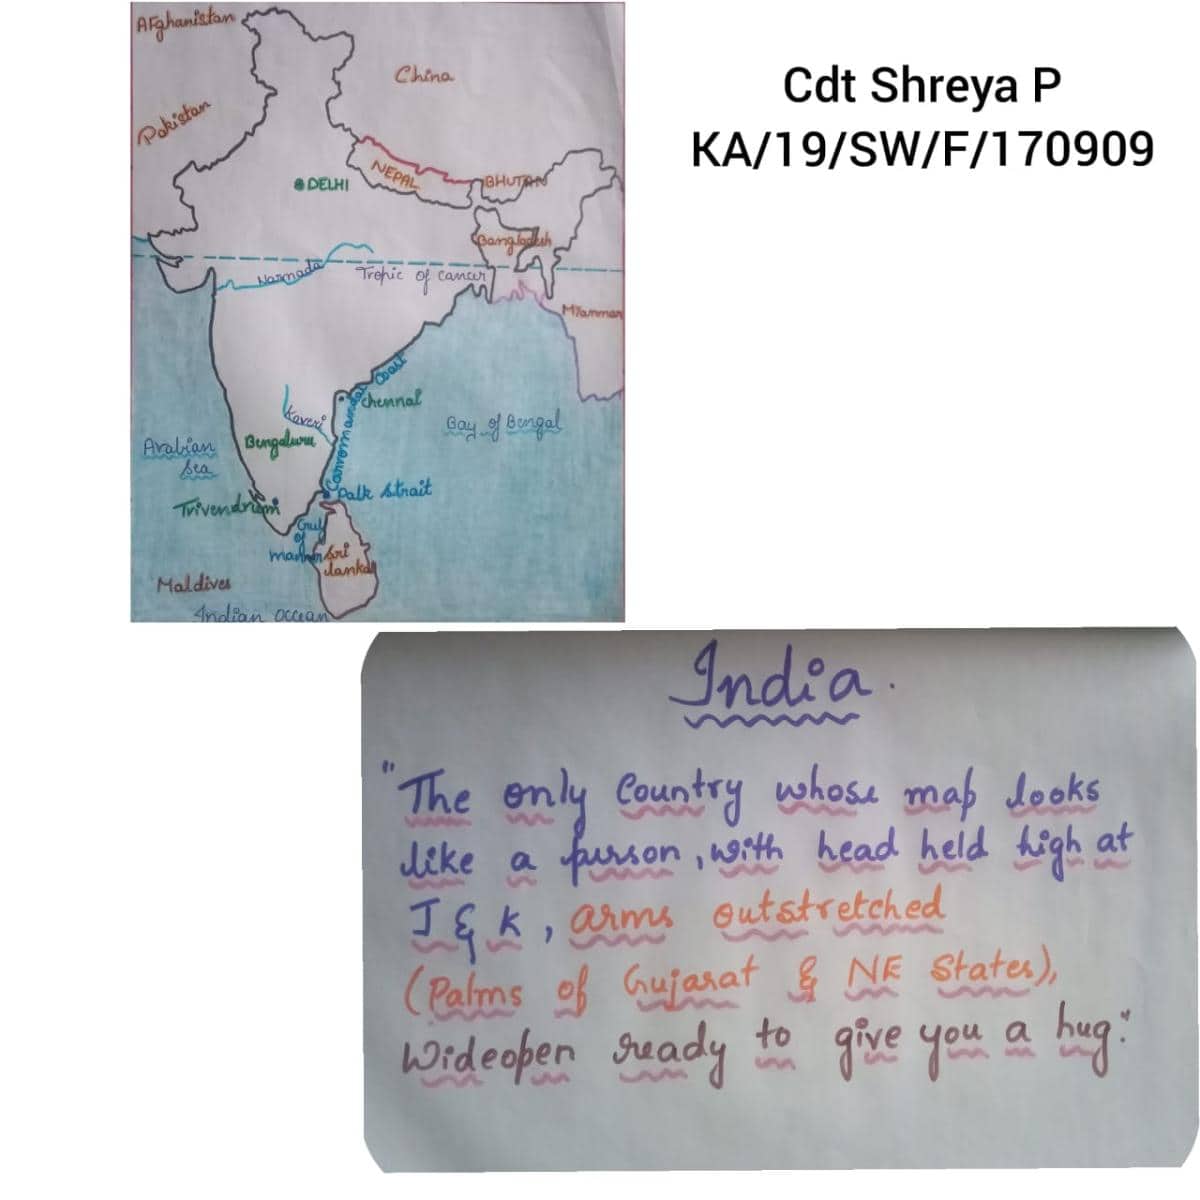 Cdt Shreya P
KA/19/SW/F/170909
Afghanistan
China
Pakistan
NEPAL
DELHI
BHUTAN
Bangladesh
Narmada
Tropic of cancer
Mianmar
Corromandal Coast
Chennai
Kaveri
Bay of Bengal
Arabian
Sea
Bengaluru
Palk Strait
Trivendrum
Gulf
of
mannar
Sri
lanka
Maldives
Indian Occean
India.
"The only Country whose map looks
like a person, with head held high at
J & K, arms outstretched
(Palms of Gujarat & NE States),
Wideopen ready to give you a hug."